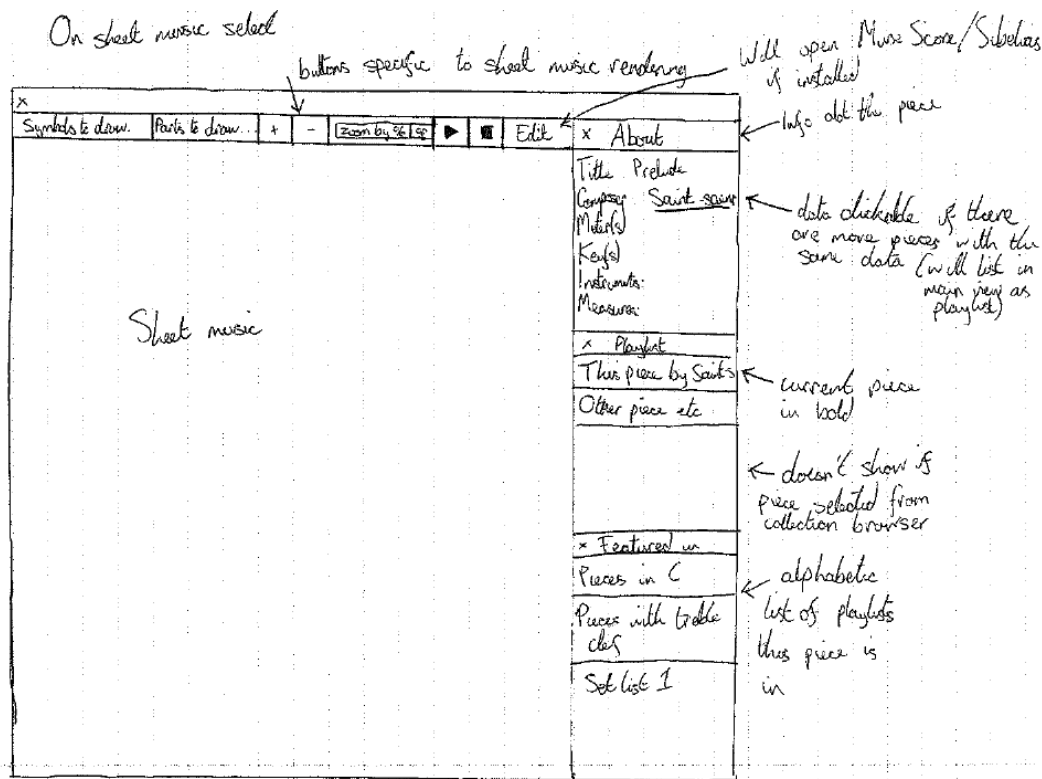 On sheet music select
buttons specific to sheet music rendering
Will open MuseScore/Sibelius
if installed
x
Symbols to draw.. Parts to draw... + - zoom by % Edit
x About
Info abt the piece
Title Prelude
Composer Saint-saens
Meter(s)
Key(s)
Instruments:
Measures:
data clickable if there
are more pieces with the
same data (will list in
main view as
playlist)
Sheet music
x Playlist
This piece by Saints
Other piece etc
current piece
in bold
doesn't show if
piece selected from
collection browser
x Featured in
Pieces in C
Pieces with treble
clef
Set list 1
alphabetic
list of playlists
this piece is
in